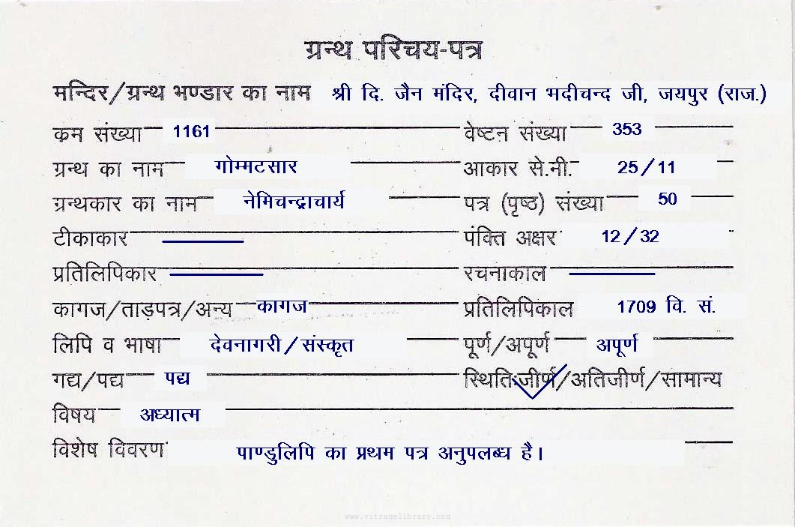 ग्रन्थ परिचय-पत्र
मन्दिर/ग्रन्थ भण्डार का नाम श्री दि. जैन मंदिर, दीवान भदीचन्द जी, जयपुर (राज.)
कम संख्या 1161 वेष्टन संख्या 353
ग्रन्थ का नाम गोम्मटसार आकार से.मी. 25/11
ग्रन्थकार का नाम नेमिचन्द्राचार्य पत्र (पृष्ठ) संख्या 50
टीकाकार पंक्ति अक्षर 12/32
प्रतिलिपिकार रचनाकाल
कागज/ताड़पत्र/अन्य कागज प्रतिलिपिकाल 1709 वि. सं.
लिपि व भाषा देवनागरी/संस्कृत पूर्ण/अपूर्ण अपूर्ण
गद्य/पद्य पद्य स्थितिःजीर्ण/अतिजीर्ण/सामान्य
विषय अध्यात्म
विशेष विवरण पाण्डुलिपि का प्रथम पत्र अनुपलब्ध है।
www.vitragelibrary.com